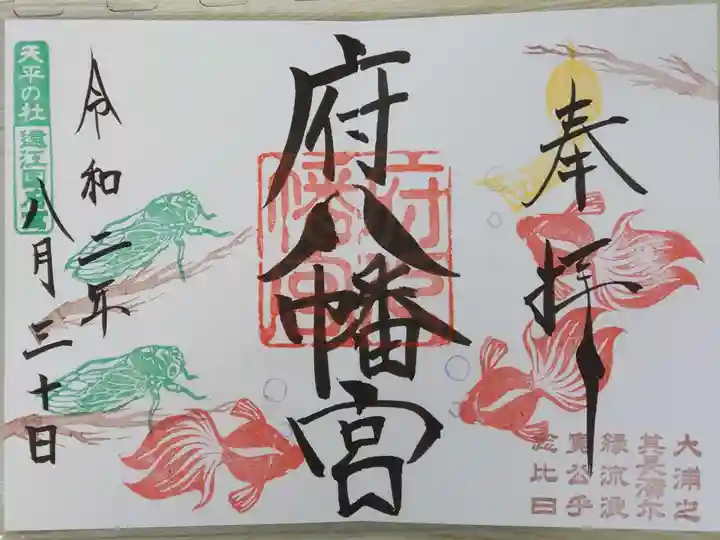 奉拝
大浦之
其長濱尓
縁流浪
寛公乎
念比日
府八幡宮
府八幡宮
令和二年
八月三十日
天平の社
遠江